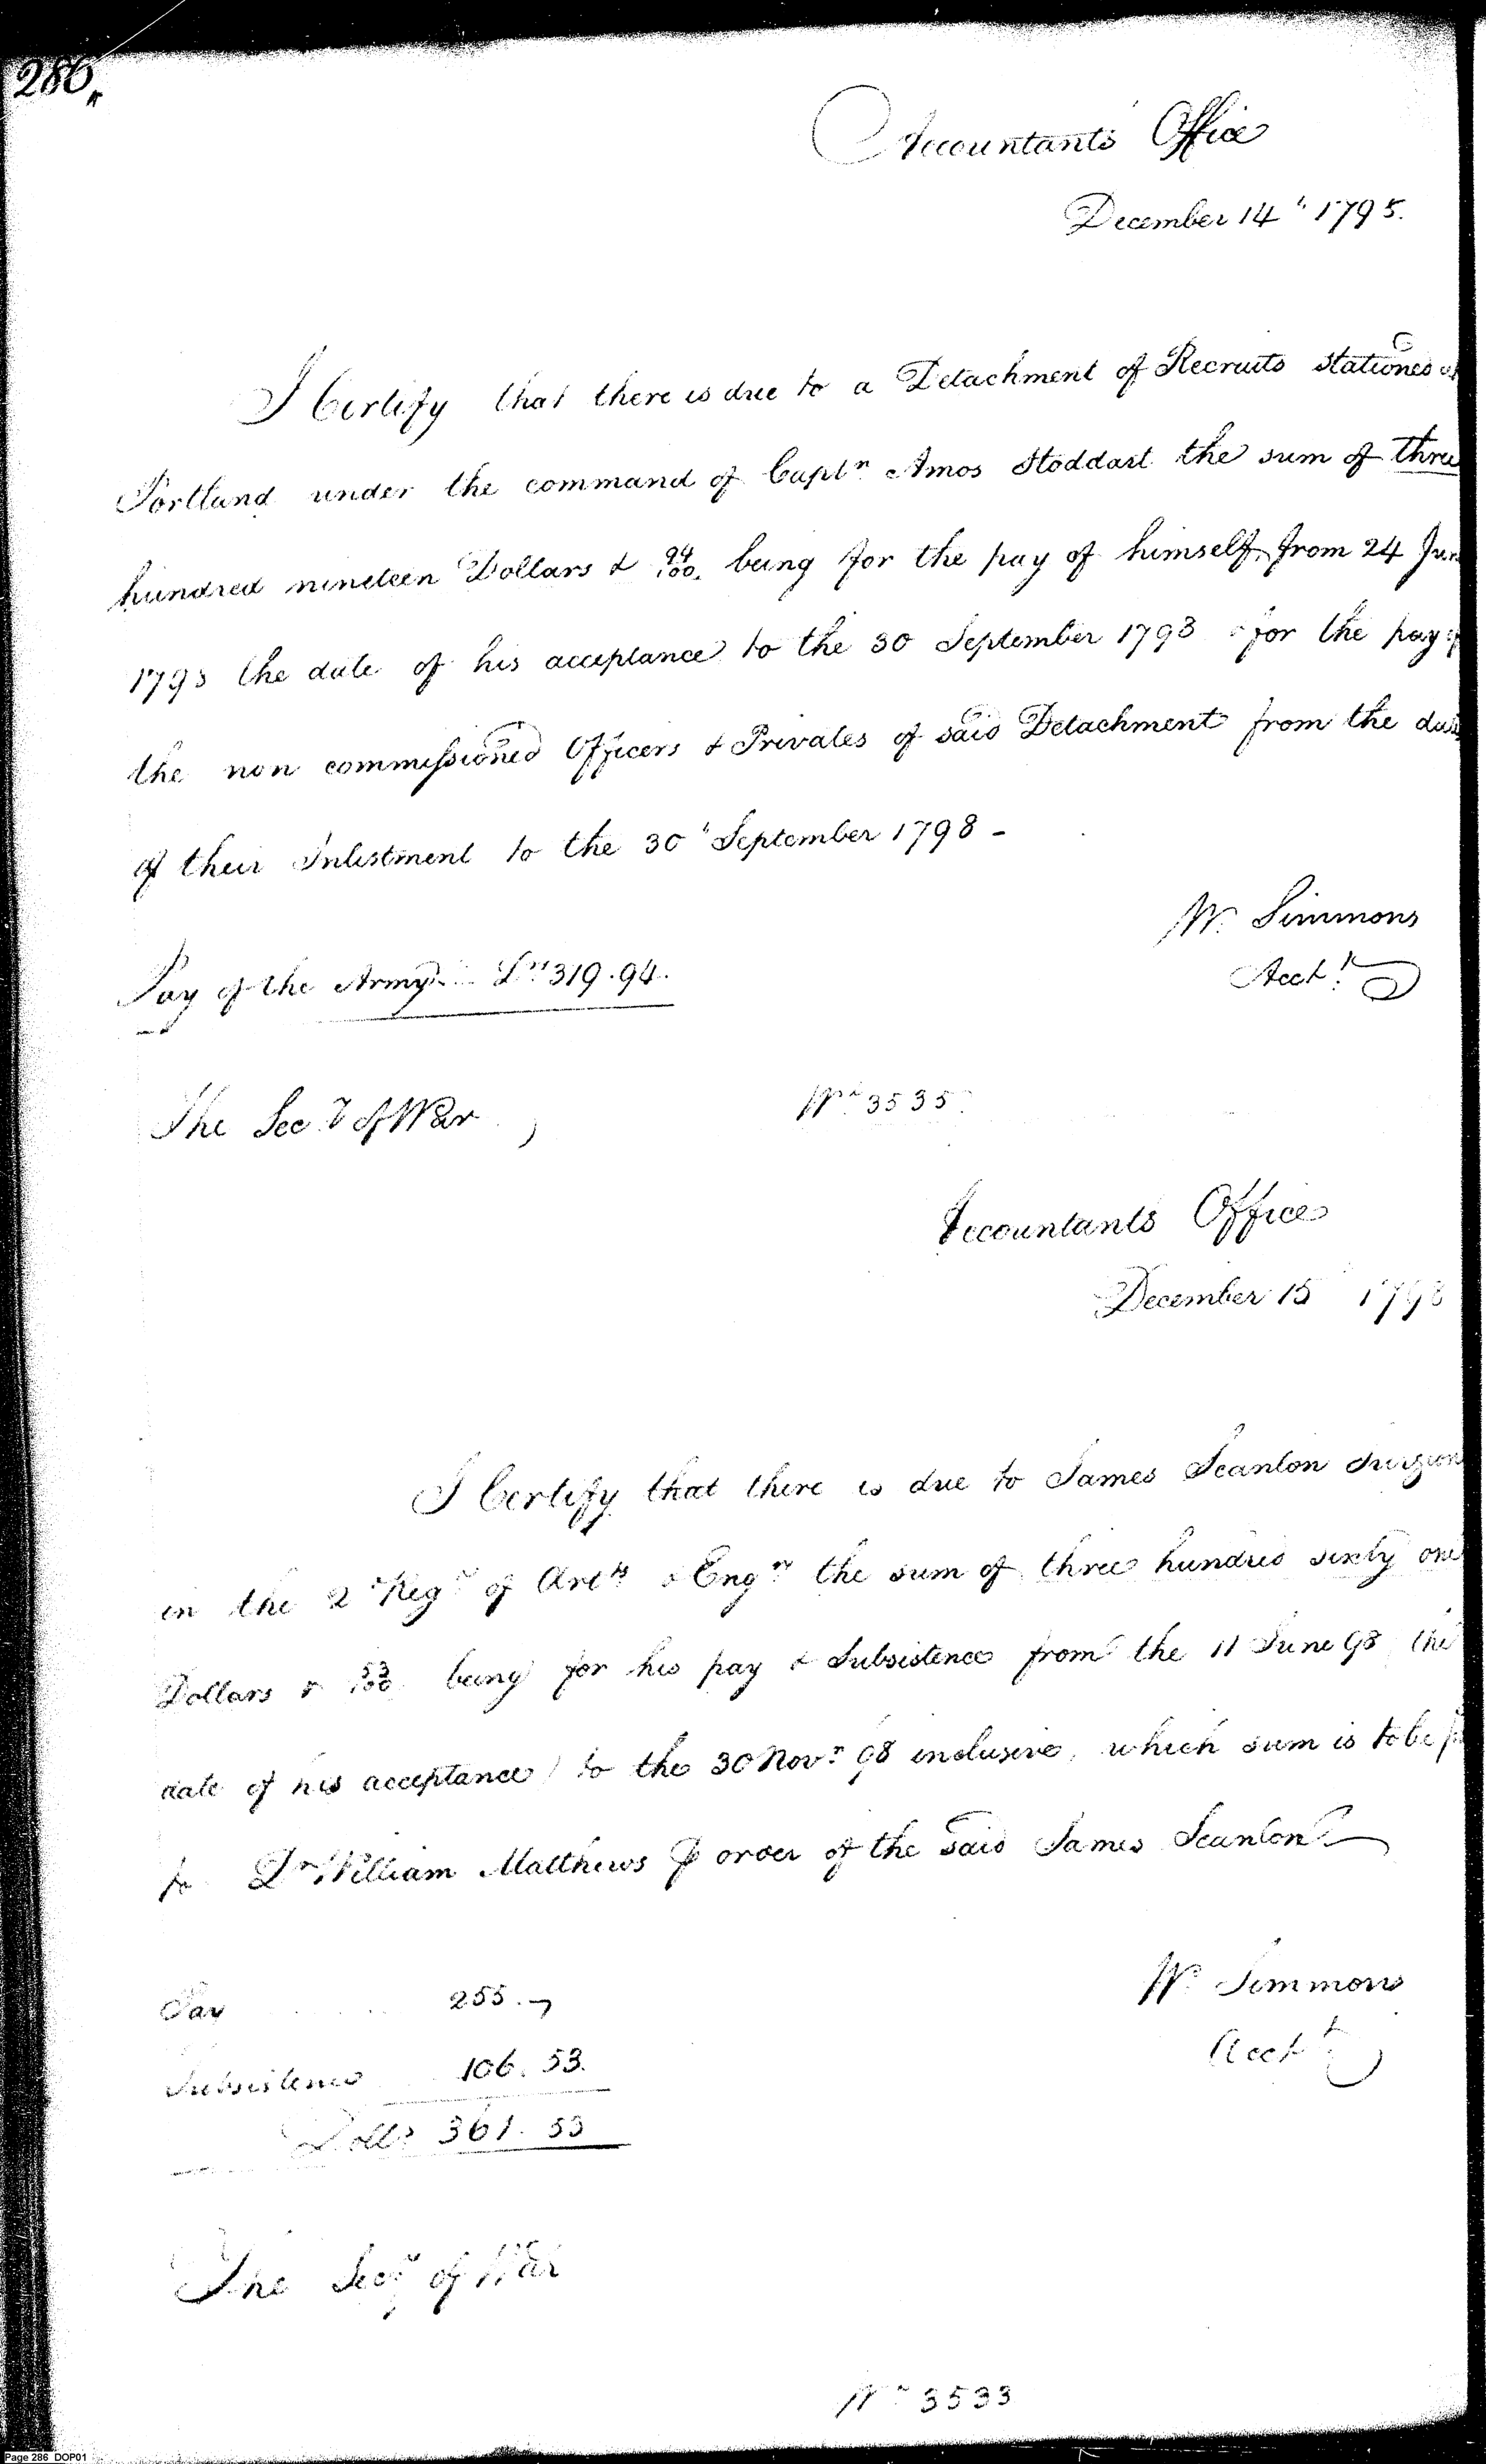 286
Accountants Office
December 14th 1798.
I Certify that there is due to a Detachment of Recruits stationed at
Portland under the command of Captn Amos Stoddart the sum of three
hundred nineteen Dollars & 94/100, being for the pay of himself from 24 June
1798 the date of his acceptance to the 30 September 1798 & for the pay of
the non commissioned Officers & Privates of said Detachment from the date
of their Inlistment to the 30th September 1798 -
W. Simmons
Acct
Pay of the Army Drs 319.94.
The Secy of War
No 3535
Accountants Office
December 15 1798
I Certify that there is due to James Scanlon Surgeon
in the 2d Regt of Arts & Engrs the sum of three hundred sixty one
Dollars & 53/100 being for his pay & Subsistence from the 11 June 98 the
date of his acceptance to the 30 Novr 98 inclusive, which sum is to be
to Dr William Matthews P order of the said James Scanlon
W. Simmons
Acct
Pay 255.
Subsistence 106.53.
Dolls 361.53
The Secy of War
No 3533
Page 286 DOP01